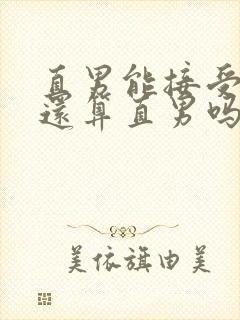 直男能接受
还算直男吗
美依旗由美